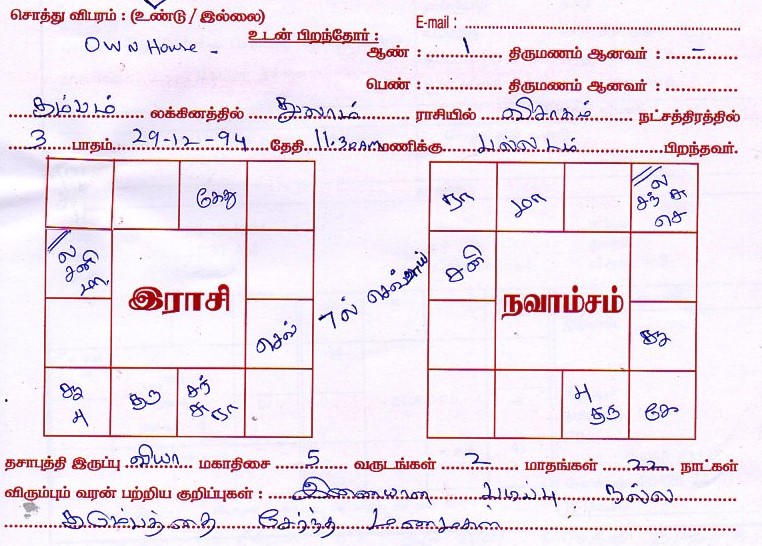 சொத்து விபரம் : (உண்டு / இல்லை)
E-mail :
Own House -
உடன் பிறந்தோர் :
ஆண் : 1 திருமணம் ஆனவர் : -
பெண் : திருமணம் ஆனவர் :
கும்பம் லக்கினத்தில் துலாம் ராசியில் விசாகம் நட்சத்திரத்தில்
3 பாதம் 29-12-94 தேதி 11.30AM மணிக்கு பல்லடம் பிறந்தவர்.
கேது
ல
சனி
மா
இராசி
செவ்
சூ
பு
குரு
சந்
சு ரா
7ல் செவ்வாய்
ரா
மா
ல
சந் சு
செ
சனி
நவாம்சம்
சூ
பு
குரு
கே
தசாபுத்தி இருப்பு வியா மகாதிசை 5 வருடங்கள் 2 மாதங்கள் 22 நாட்கள்
விரும்பும் வரன் பற்றிய குறிப்புகள் : இணையான படிப்பு நல்ல
குடும்பத்தை சேர்ந்த மணமகன்